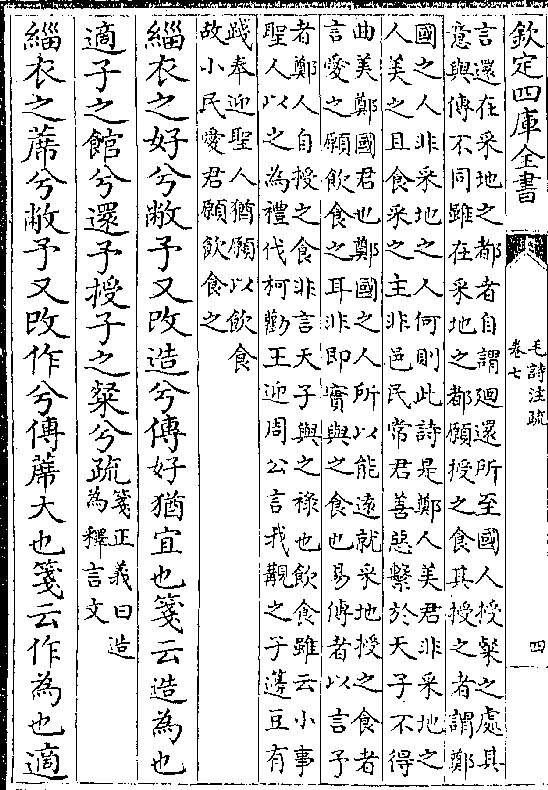 欽定四庫全書
毛詩注疏
卷七
四
言還在采地之都者自謂廻還所至國人授粲之處其
意與傳不同雖在采地之都願授之食其授之者謂鄭
國之人非采地之人何則此詩是鄭人美君非采地之
人美之且食采之主非邑民常君善惡繫於天子不得
曲美鄭國君也鄭國之人所以能遠就采地授之食者
言愛之願飲食之耳非即實與之食也易傳者以言予
者鄭人自授之食非言天子與之祿也飲食雖云小事
聖人以之為禮伐柯勸王迎周公言我覯之子籩豆有
踐奉迎聖人猶願以飲食
故小民愛君願飲食之
緇衣之好兮敝予又改造兮傳好猶宜也箋云造為也
適子之館兮還予授子之粲兮疏
箋正義曰造
為釋言文
緇衣之蓆兮敝予又改作兮傳蓆大也箋云作為也適